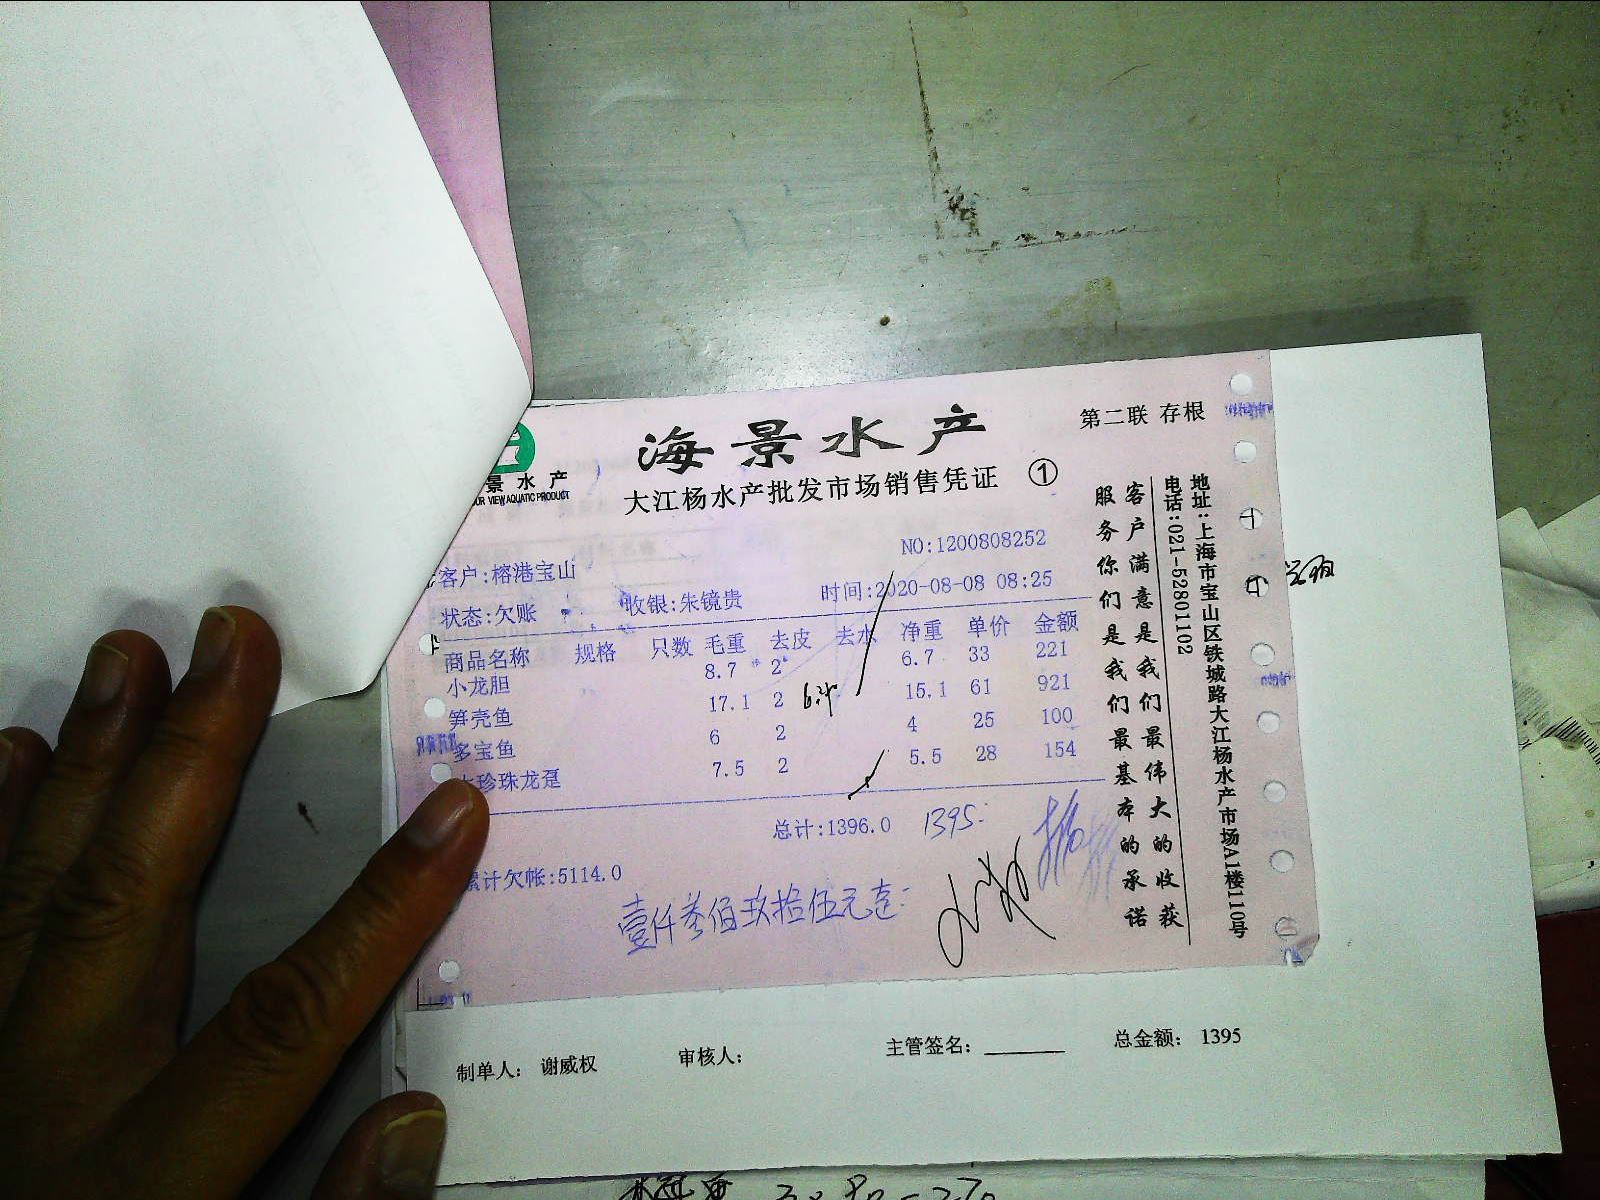 海景水产
第二联 存根
大江杨水产批发市场销售凭证 ①
景水产
VIEW AQUATIC PRODUCT
NO:1200808252
客户:榕港宝山
状态:欠账 收银:朱镜贵 时间:2020-08-08 08:25
商品名称 规格 只数 毛重 去皮 去水 净重 单价 金额
小龙胆 8.7 2 6.7 33 221
笋壳鱼 17.1 2 15.1 61 921
多宝鱼 6 2 4 25 100
珍珠龙趸 7.5 2 5.5 28 154
总计:1396.0 1395.
累计欠帐:5114.0
壹仟叁佰玖拾伍元
客户满意是我们最伟大的收获
服务你们是我们最基本的承诺
地址:上海市宝山区铁城路大江杨水产市场A1楼110号
电话:021-52801102
制单人: 谢威权 审核人: 主管签名: 总金额: 1395